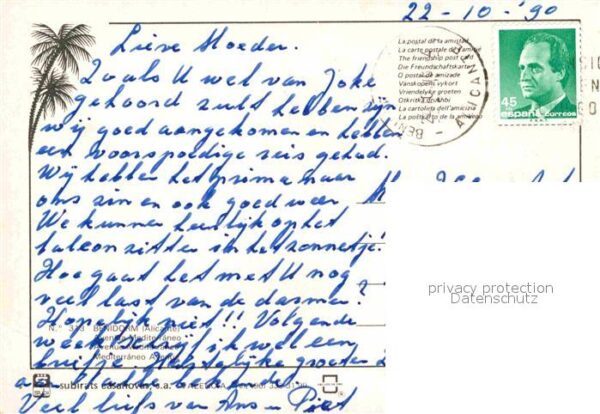 22-10-'90
Lieve Moeder.
Zoals U wel van Joke
gehoord zult hebben zijn
wij goed aangekomen en hebben
een voorspoedige reis gehad.
Wij hebben het prima naar
ons zin en ook goed weer
We kunnen heerlijk op het
balcon zitten in het zonnetje!
Hoe gaat het met U nog
veel last van de darmen?
Hopelijk niet!! Volgende
week schrijf ik wel een
briefje. Hartelijke groeten
Veel liefs van Ans en Piet
La postal de la amistad
La carte postale de l'amitié
The friendship post card
Die Freundschaftskarte
O postal de amizade
Vanskapens vykort
Vriendelijke groeten
La cartolina dell'amicizia
ALICANTE
45
españa correos
N.º 313 BENIDORM (Alicante)
Mediterráneo
subirats casanovas, s.a.
privacy protection
Datenschutz